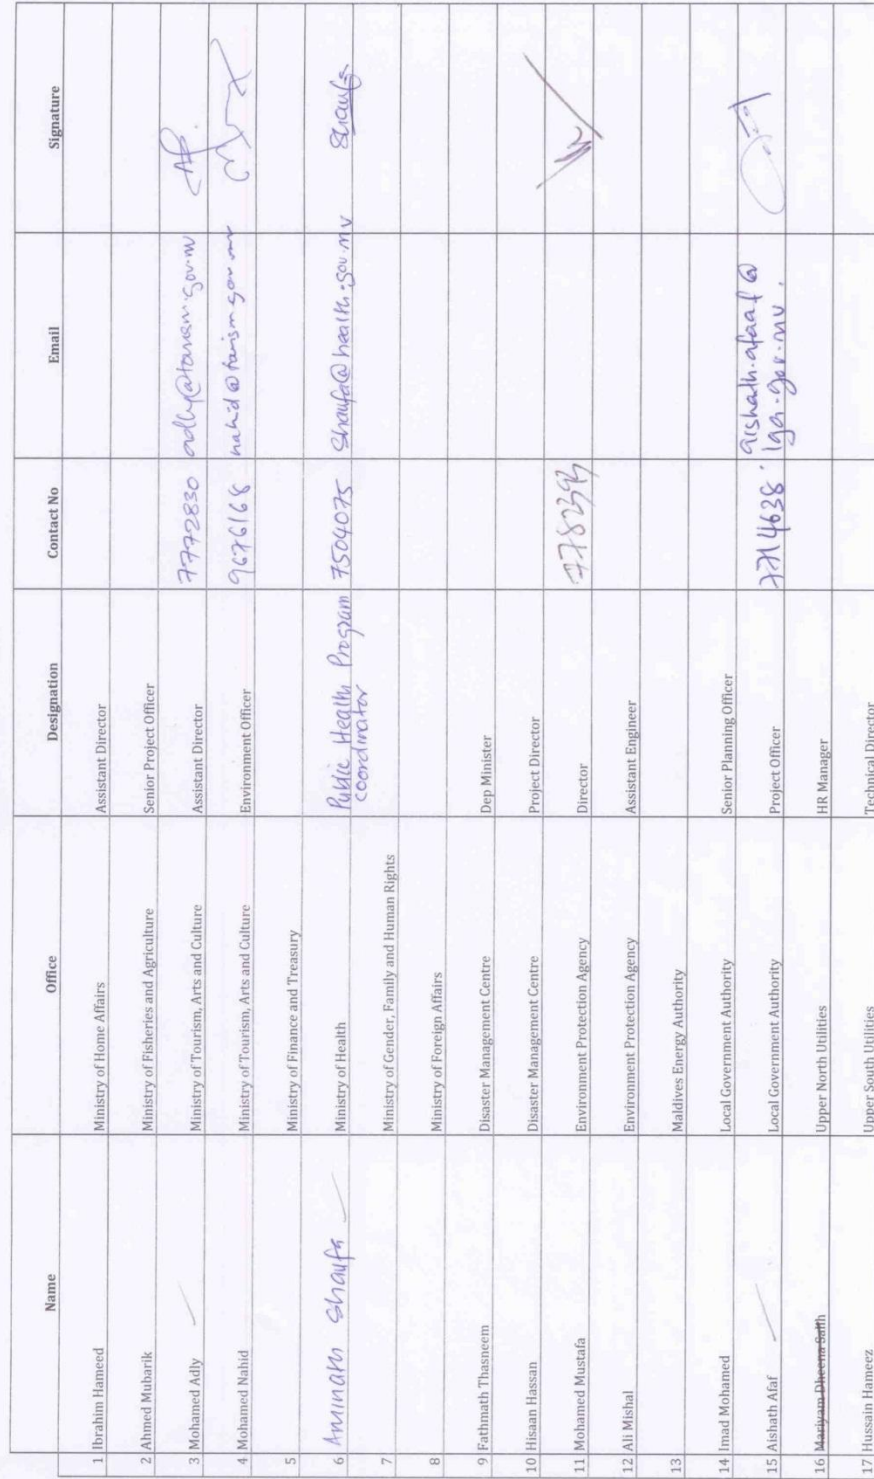 Name Office Designation Contact No Email Signature
1 Ibrahim Hameed Ministry of Home Affairs Assistant Director
2 Ahmed Mubarik Ministry of Fisheries and Agriculture Senior Project Officer
3 Mohamed Adly Ministry of Tourism, Arts and Culture Assistant Director 7772830 adly@tourism.gov.mv
4 Mohamed Nahid Ministry of Tourism, Arts and Culture Environment Officer 9676168 nahid@tourism.gov.mv
5 Ministry of Finance and Treasury
6 Aminath Shaufa Ministry of Health Public Health Program 7504075 Shaufa@health.gov.mv Shaufa
coordinator
7 Ministry of Gender, Family and Human Rights
8 Ministry of Foreign Affairs
9 Fathmath Thasneem Disaster Management Centre Dep Minister
10 Hisaan Hassan Disaster Management Centre Project Director
11 Mohamed Mustafa Environment Protection Agency Director 7782393
12 Ali Mishal Environment Protection Agency Assistant Engineer
13 Maldives Energy Authority
14 Imad Mohamed Local Government Authority Senior Planning Officer
15 Aishath Afaf Local Government Authority Project Officer 7714638 aishath.afaaf@
lga.gov.mv.
16 Mariyam Dheena Salih Upper North Utilities HR Manager
17 Hussain Hameez Upper South Utilities Technical Director